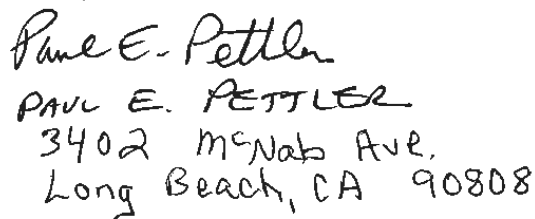 Paul E. Pettler
PAUL E. PETTLER
3402 McNab Ave.
Long Beach, CA 90808